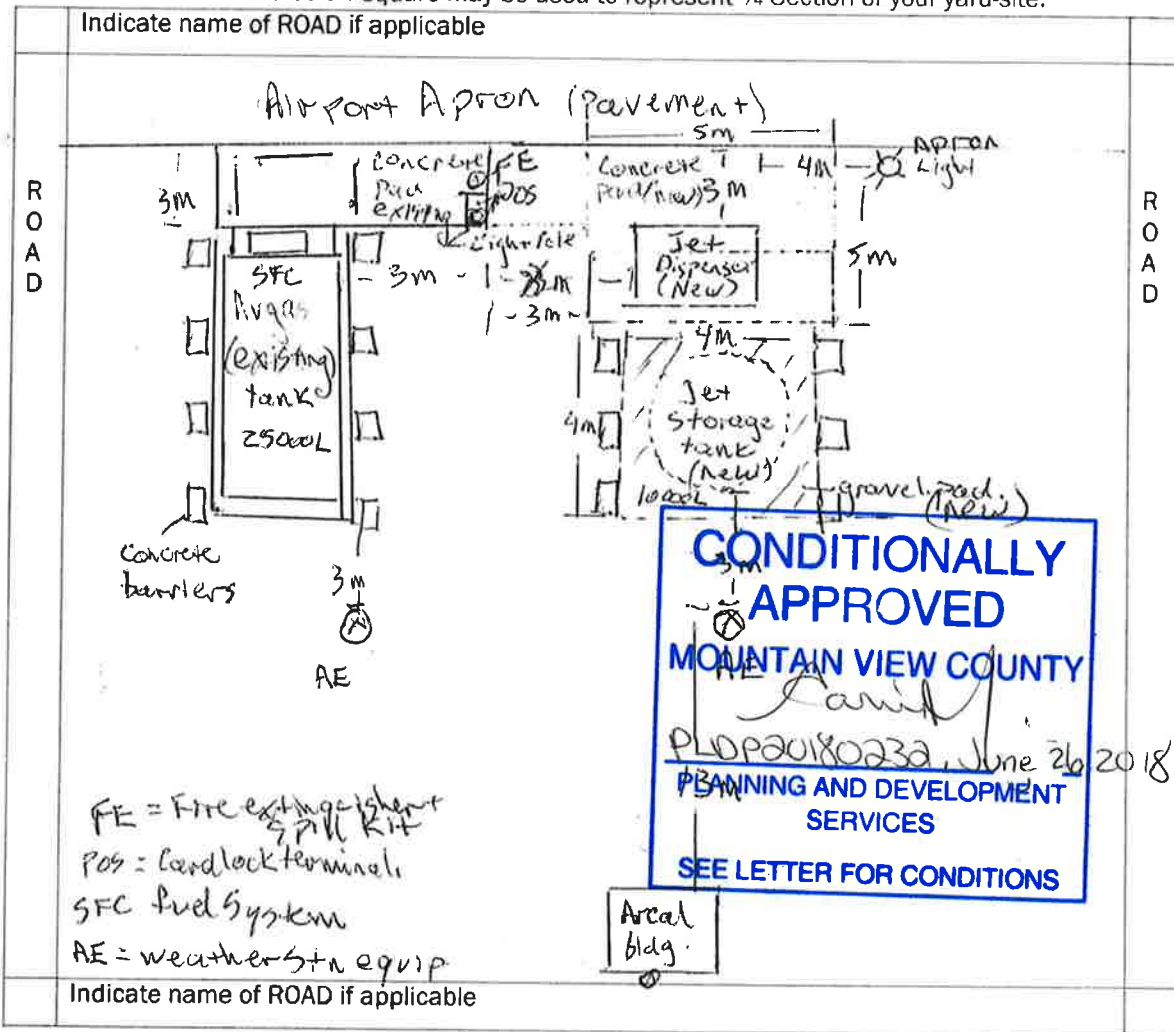 square may be used to represent ¼ Section of your yard-site.
Indicate name of ROAD if applicable
ROAD
ROAD
Airport Apron (Pavement)
5m
3m
Concrete Pad existing
FE
POS
Concrete pad (new)
3m
4m
Apron Light
Light Pole
5m
SFC
Avgas
(existing)
tank
25000L
3m
3m
Jet
Dispenser
(New)
4m
4m
Jet
storage
tank
(new)
10000L
gravel pad.
(new)
Concrete
barriers
3m
AE
3m
AE
13m
CONDITIONALLY
APPROVED
MOUNTAIN VIEW COUNTY
PLDP20180232, June 26, 2018
PLANNING AND DEVELOPMENT
SERVICES
SEE LETTER FOR CONDITIONS
FE = Fire extinguisher +
Spill Kit
POS = Cardlock terminal
SFC fuel System
AE = weather stn equip
bldg.
Indicate name of ROAD if applicable